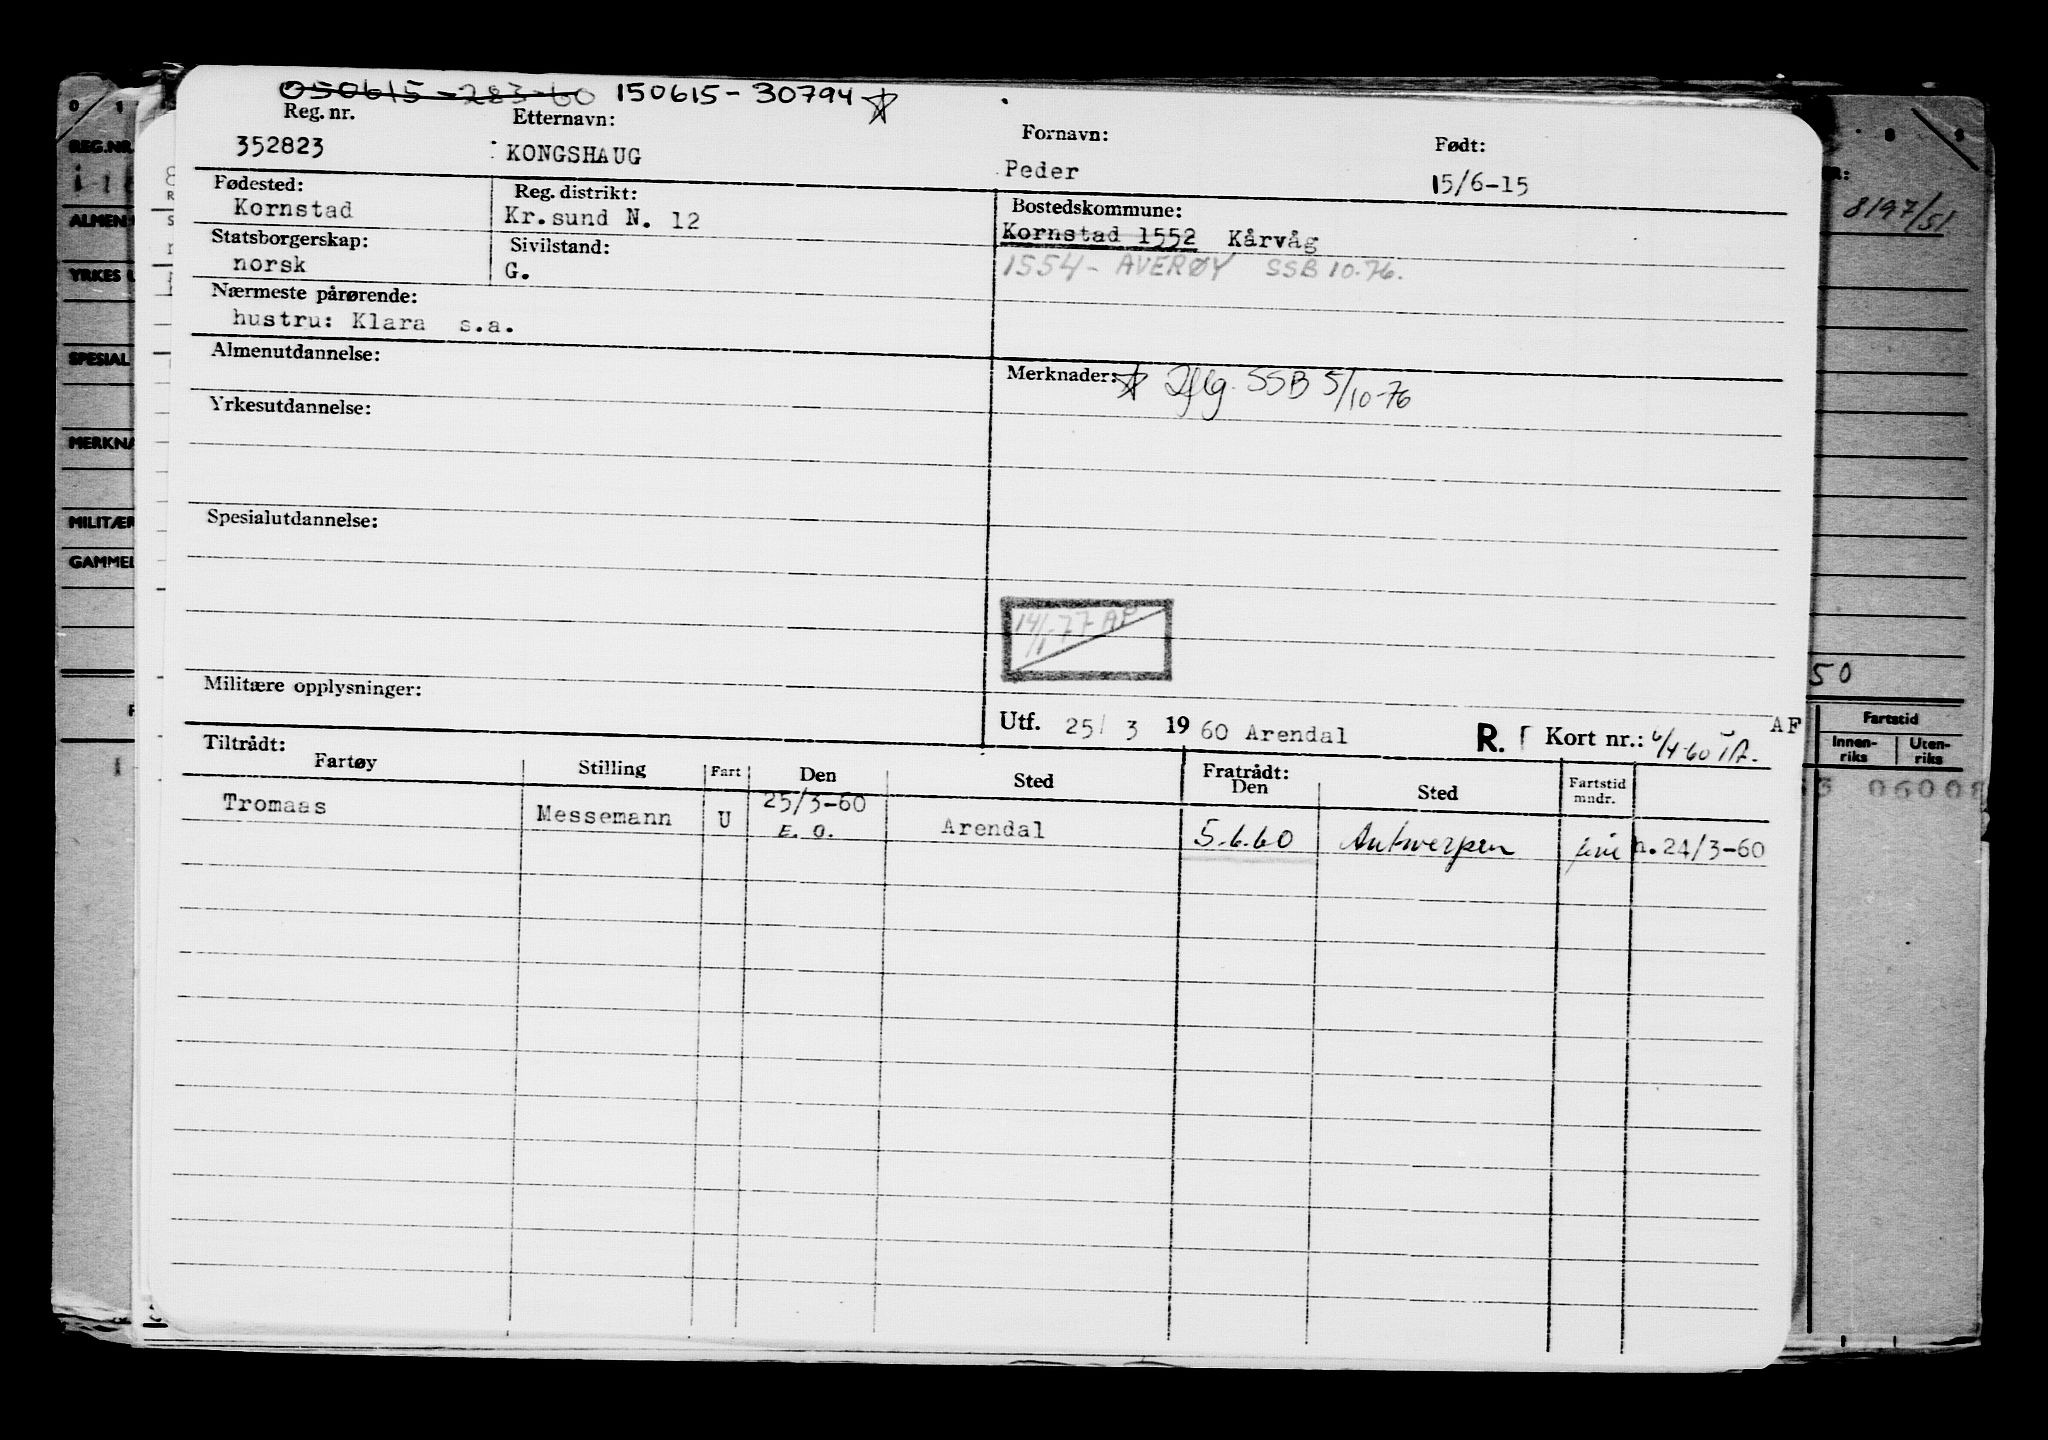 050615-283-60 150615-30794 ☆
Reg. nr. Etternavn: Fornavn: Født:
352823 KONGSHAUG Peder 15/6-15
Fødested: Reg. distrikt: Bostedskommune:
Kornstad Kr.sund N. 12 Kornstad 1552 Kårvåg
Statsborgerskap: Sivilstand: 1554- AVERØY SSB 10.76.
norsk G.
Nærmeste pårørende:
hustru: Klara s.a.
Almenutdannelse: Merknader: ☆ Iflg. SSB 5/10-76
Yrkesutdannelse:
Spesialutdannelse:
14/1-77-AP
Militære opplysninger:
Utf. 25/ 3 1960 Arendal R. Kort nr.: 6/4-60 AF
Tiltrådt: Fratrådt:
Fartøy Stilling Fart Den Sted Den Sted Fartstid mndr.
Tromaas Messemann U 25/3-60 Arendal 5.6.60 Antwerpen h. 24/3-60
E. O.
0 1
REG.NR.
ALMEN
YRKES
SPESIAL
MERKNA
MILITÆR
GAMMEL
8 9
8197/51
50
Fartstid
Innen-riks Uten-riks